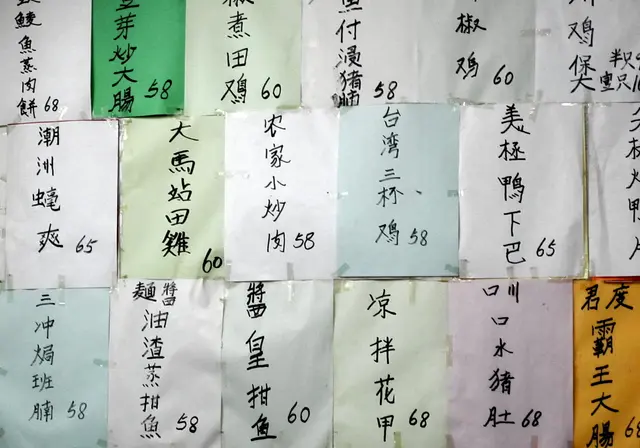 魚蒸肉餅 68
芽炒大腸 58
椒煮田鸡 60
付浸猪腩 58
椒鸡 60
鸡
潮洲蠔爽 65
大馬站田雞 60
农家小炒肉 58
台湾三杯鸡 58
美極鴨下巴 65
三冲焗班腩 58
麵醬油渣蒸柑魚 58
醬皇柑魚 60
凉拌花甲 68
口川口水猪肚 68
君度霸王大腸 68